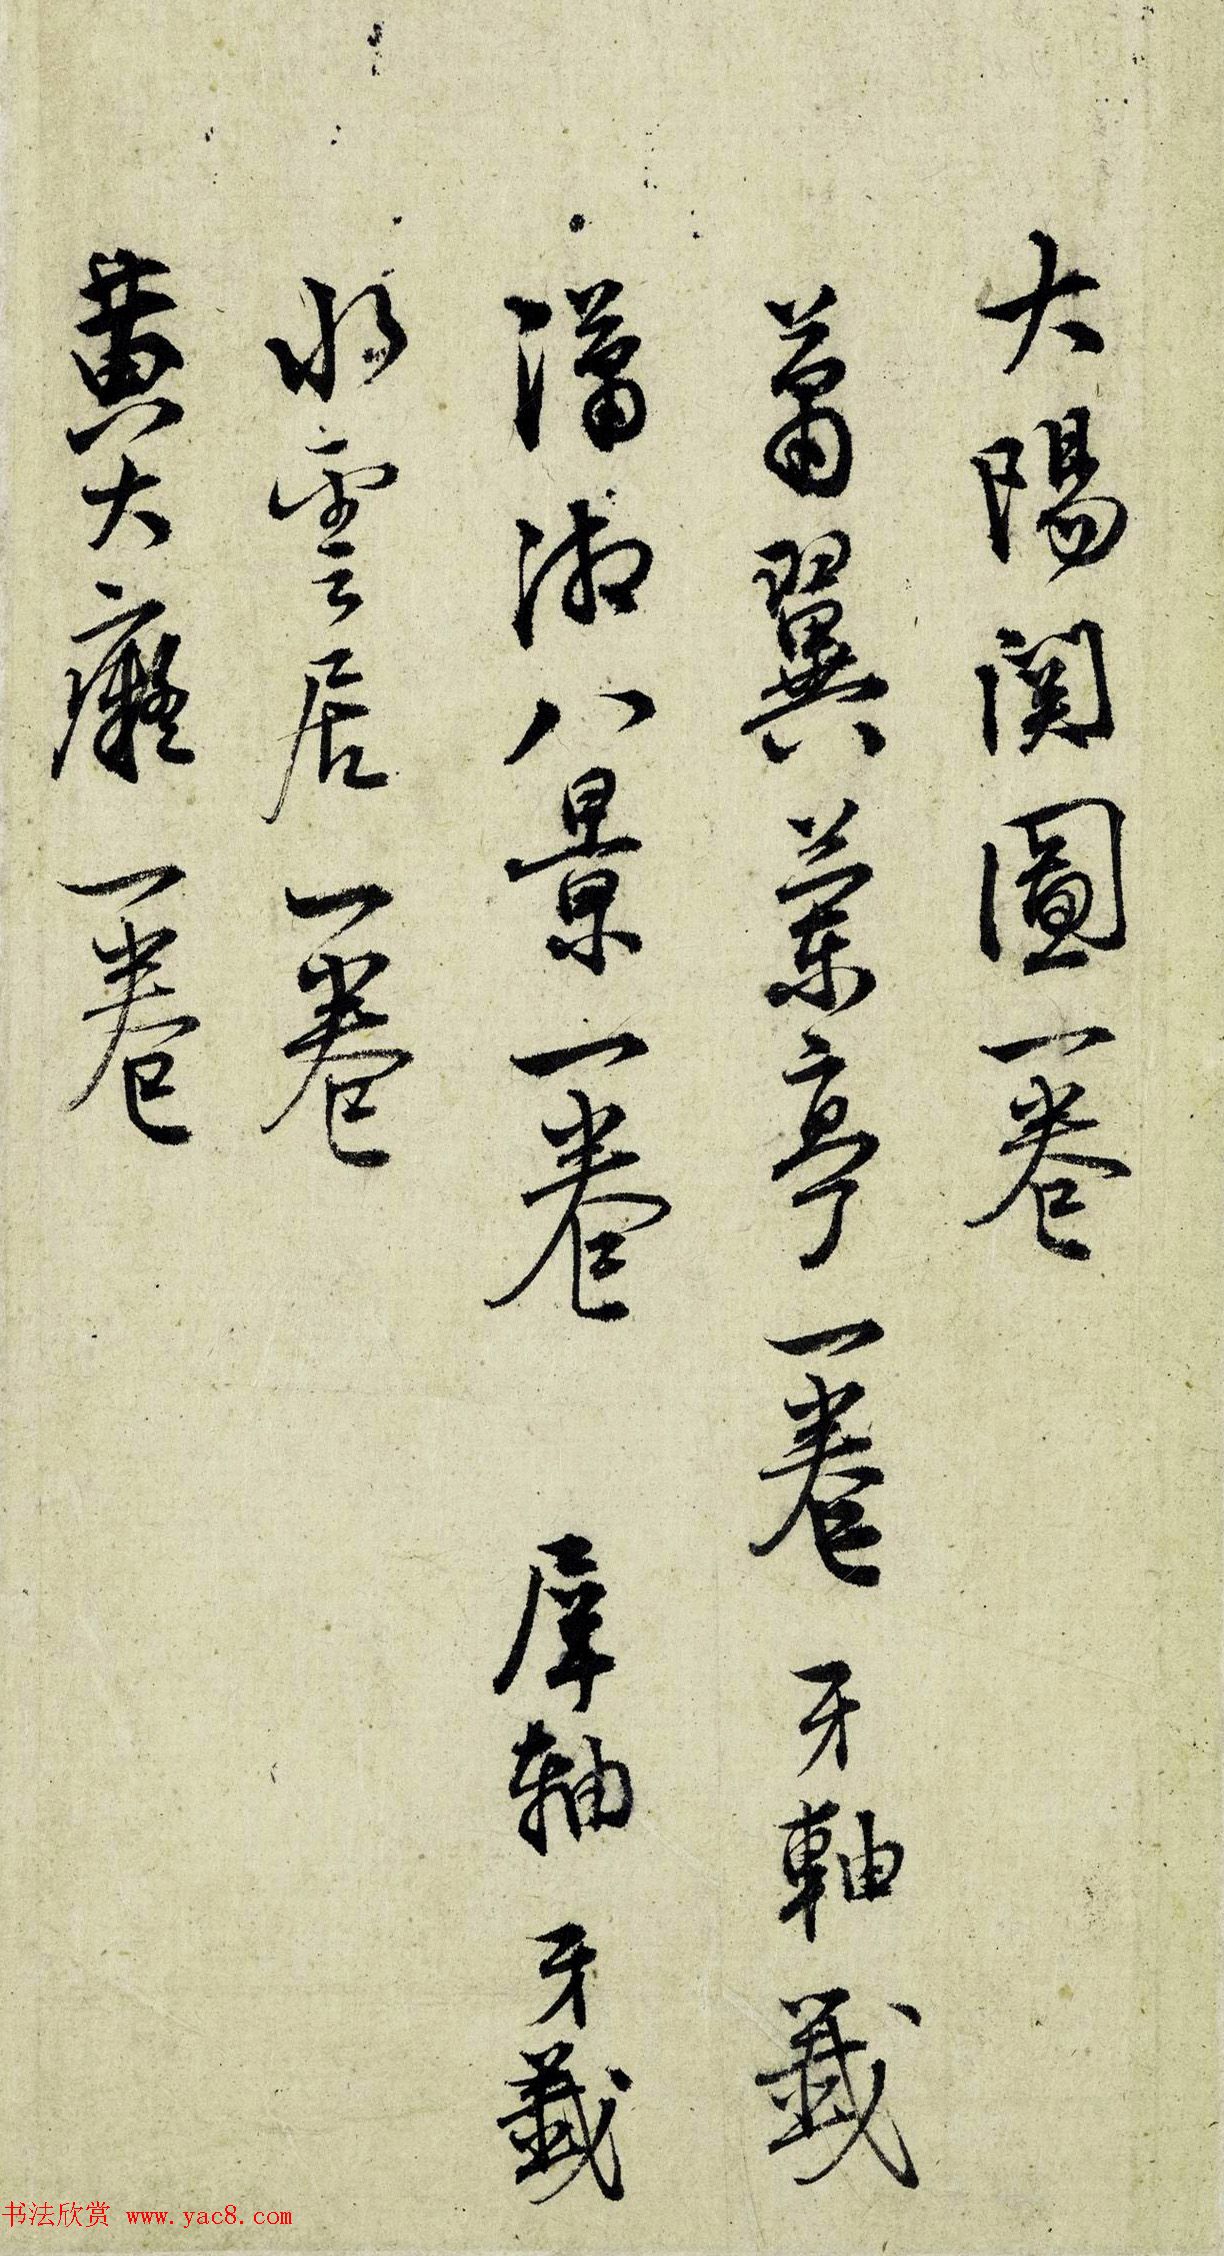 大陽関圖一卷
蕭翼蘭亭一卷 牙軸籤
瀟湘八景一卷 犀軸 牙籤
水雲居一卷
黃大癡一卷
书法欣赏 www.yac8.com